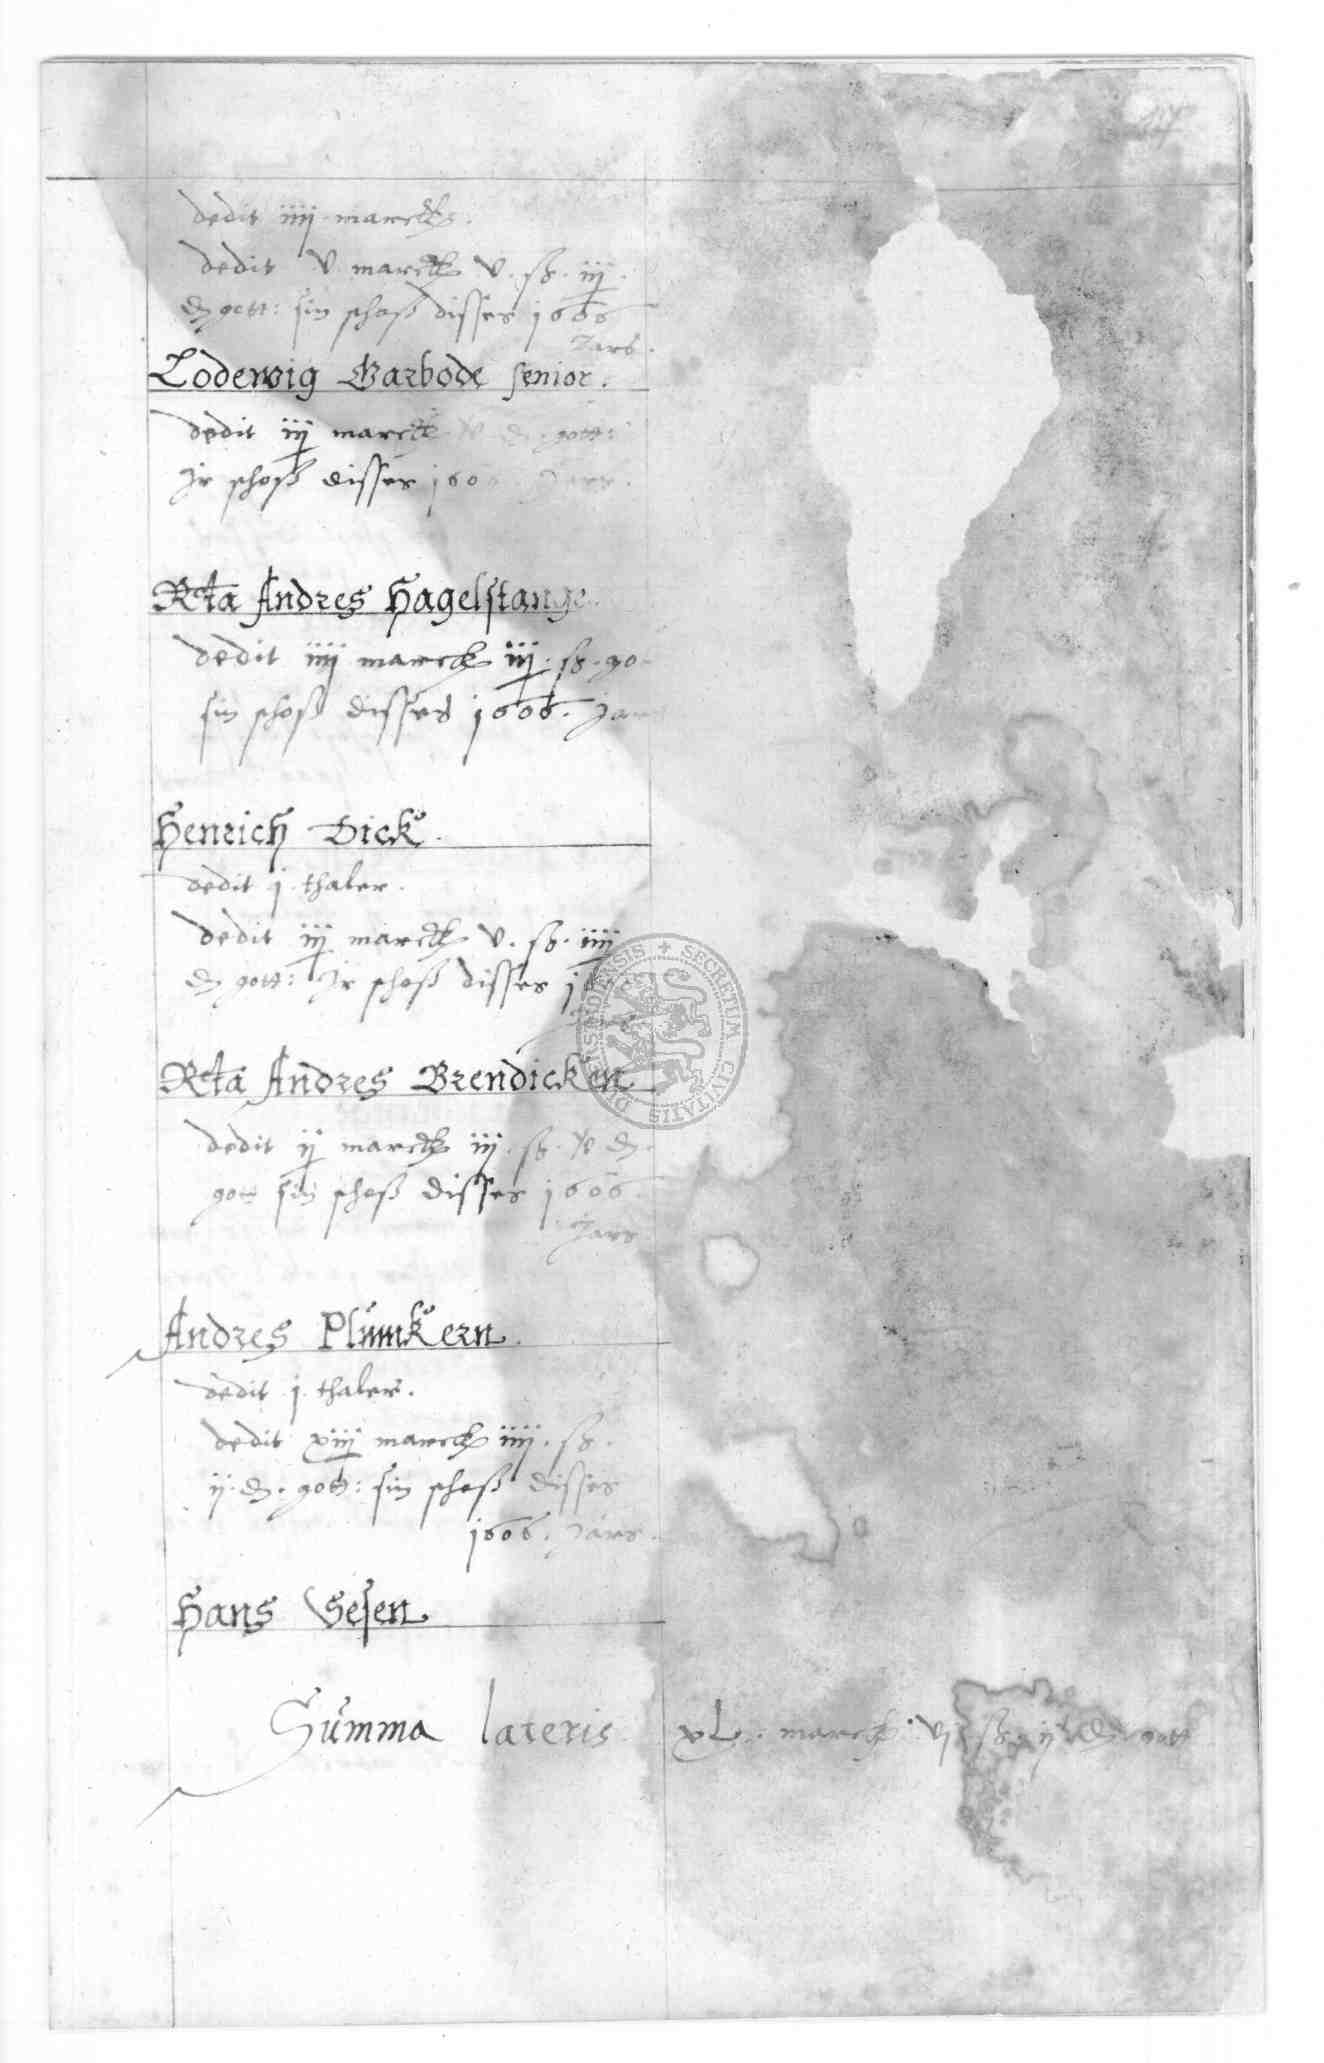 dedit iiij marck.
dedit v. marck v. ß. iij.
₰ gott: sin schoß disses 1606
Jars.
Lodewig Garbode senior.
dedit iij marck ₰. gott:
Jr schoß disses 160 Jars.
Rta Andres Hagelstange.
dedit iiij marck iij. ß. go
sin schoß disses 1606. Jar
Henrich Dick.
dedit j. thaler.
dedit iij marck v. ß. iiij
₰ gott: Jr schoß disses
Rta Andres Brendicken
dedit ij marck iij. ß. ₰.
gott sin schoß disses 1606.
Jars
Andres Plumkern.
dedit j. thaler.
dedit xiij marck iiij. ß.
ij. ₰. gott: sin schoß disses
1606. Jars.
Hans Vesen
Summa lateris xL. marck. vj ß. ij ₰ gott
SECRETUM CIVITATIS DUDERSTADENSIS